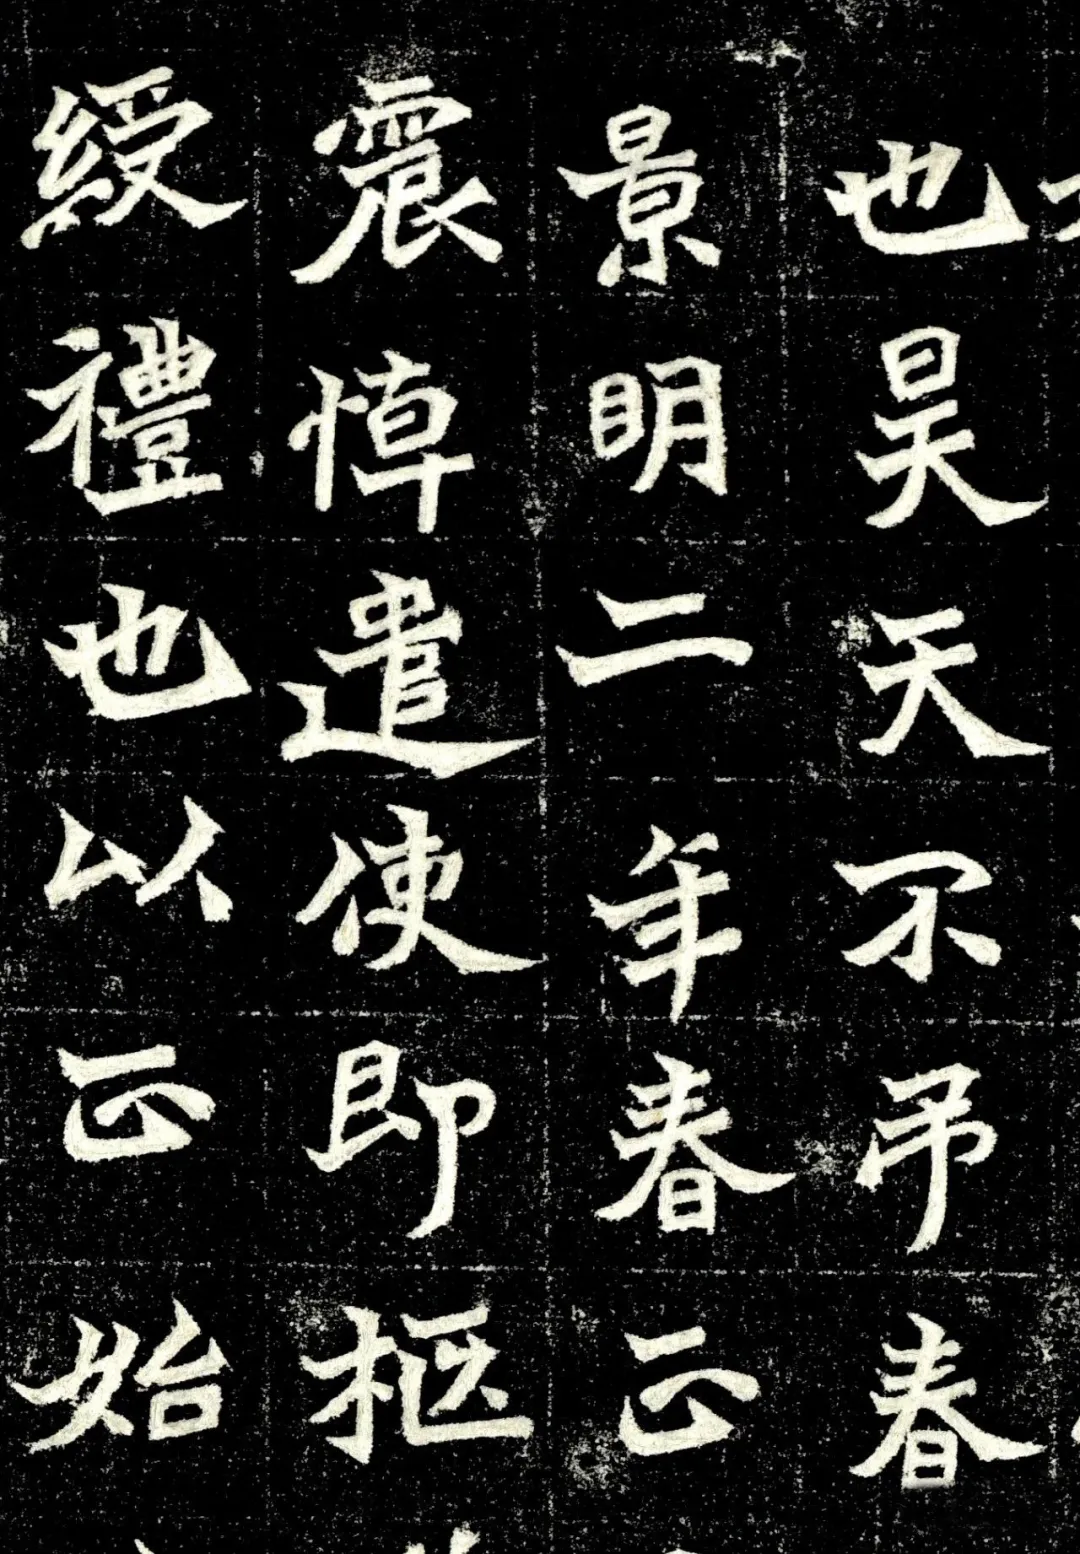 也昊天不弔春
景明二年春正
震悼遣使即柩
綬禮也以正始